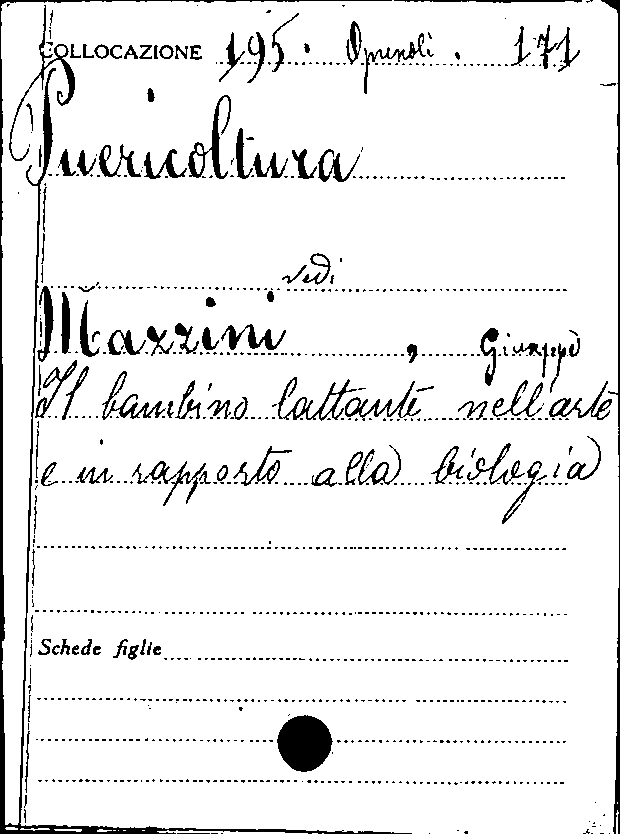 COLLOCAZIONE 195. Opuscoli. 171
Puericoltura
vedi
Mazzini, Giuseppe
Il bambino lattante nell'arte
e in rapporto alla biologia
Schede figlie